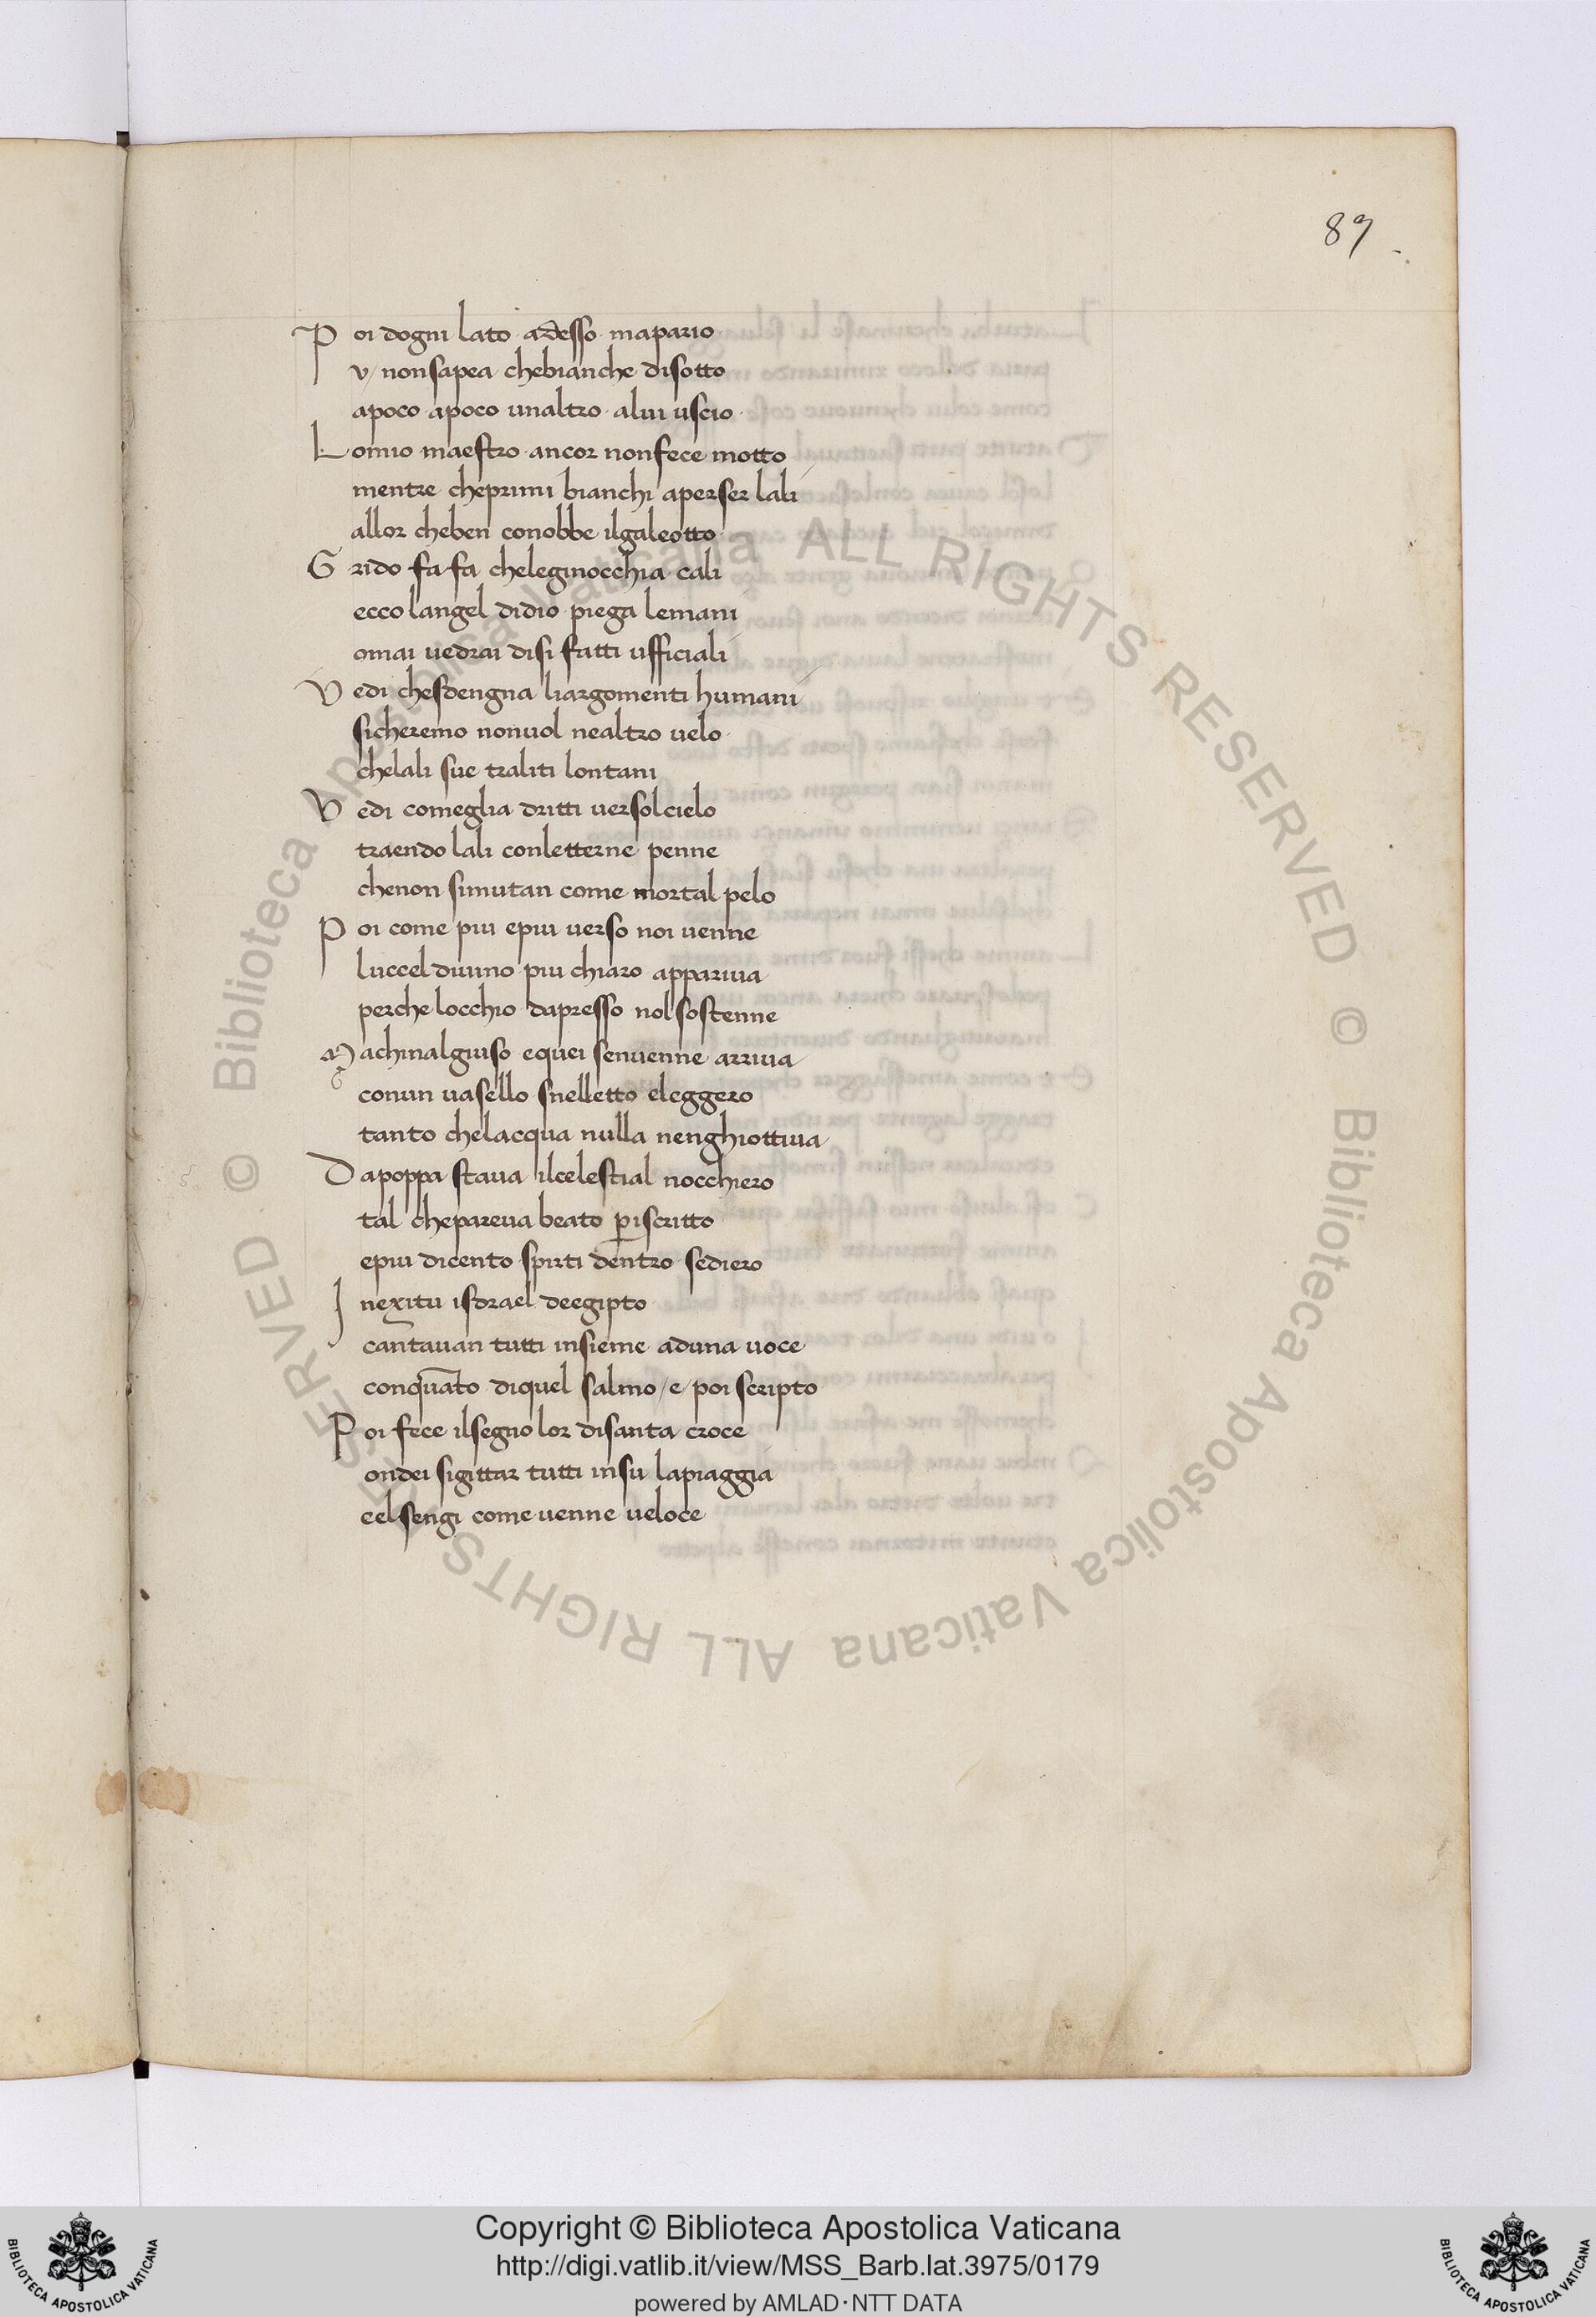 89
Poi dogni lato adesso mapario
v/ nonsapea chebianche disotto
apoco apoco unaltro alui uscio
Lomio maestro ancor nonfece motto
mentre cheprimi bianchi aperser lali
allor cheben conobbe ilgaleotto
Grido fa fa cheleginocchia cali
ecco langel didio piega lemani
omai uedrai disi fatti ufficiali
Vedi chesdengna liargomenti humani
sicheremo nonuol nealtro uelo
chelali sue traliti lontani
Vedi comeglia dritti uersolcielo
traendo lali conletterne penne
chenon simutan come mortal pelo
Poi come piu epiu uerso noi uenne
luccel diuino piu chiaro appariua
perche locchio dapresso nolsostenne
Machinalgiuso equei senuenne arriua
conun uasello snelletto eleggero
tanto chelacqua nulla nenghiottiua
Dapoppa staua ilcelestial nocchiero
tal chepareua beato p̲iscritto
epiu dicento spirti dentro sediero
Inexitu isdrael deegipto
cantauan tutti insieme aduna uoce
conquāto diquel salmo/e/poi scripto
Poi fece ilsegno lor disanta croce
ondei sigittar tutti insu lapiaggia
eelsengi come uenne ueloce
© Biblioteca Apostolica Vaticana ALL RIGHTS RESERVED
© Biblioteca Apostolica Vaticana ALL RIGHTS RESERVED
Copyright © Biblioteca Apostolica Vaticana
http://digi.vatlib.it/view/MSS_Barb.lat.3975/0179
powered by AMLAD·NTT DATA
BIBLIOTECA APOSTOLICA VATICANA
BIBLIOTECA APOSTOLICA VATICANA